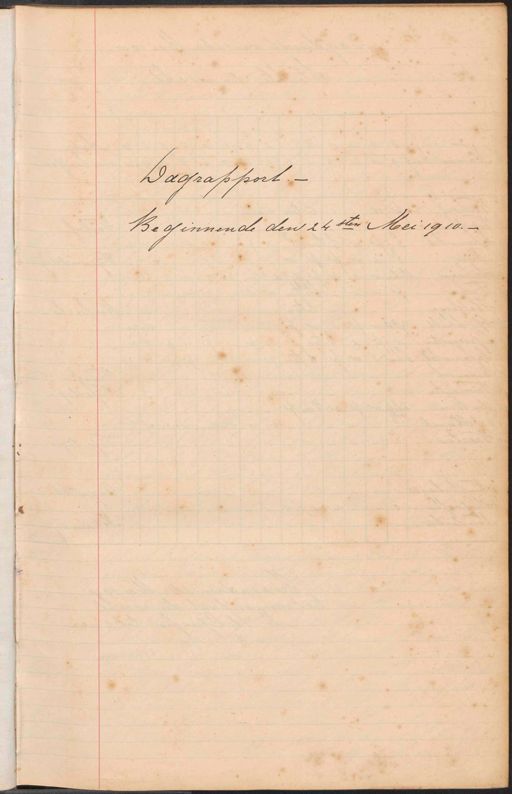 Dagrapport –
Beginnende den 24sten Mei 1910. –